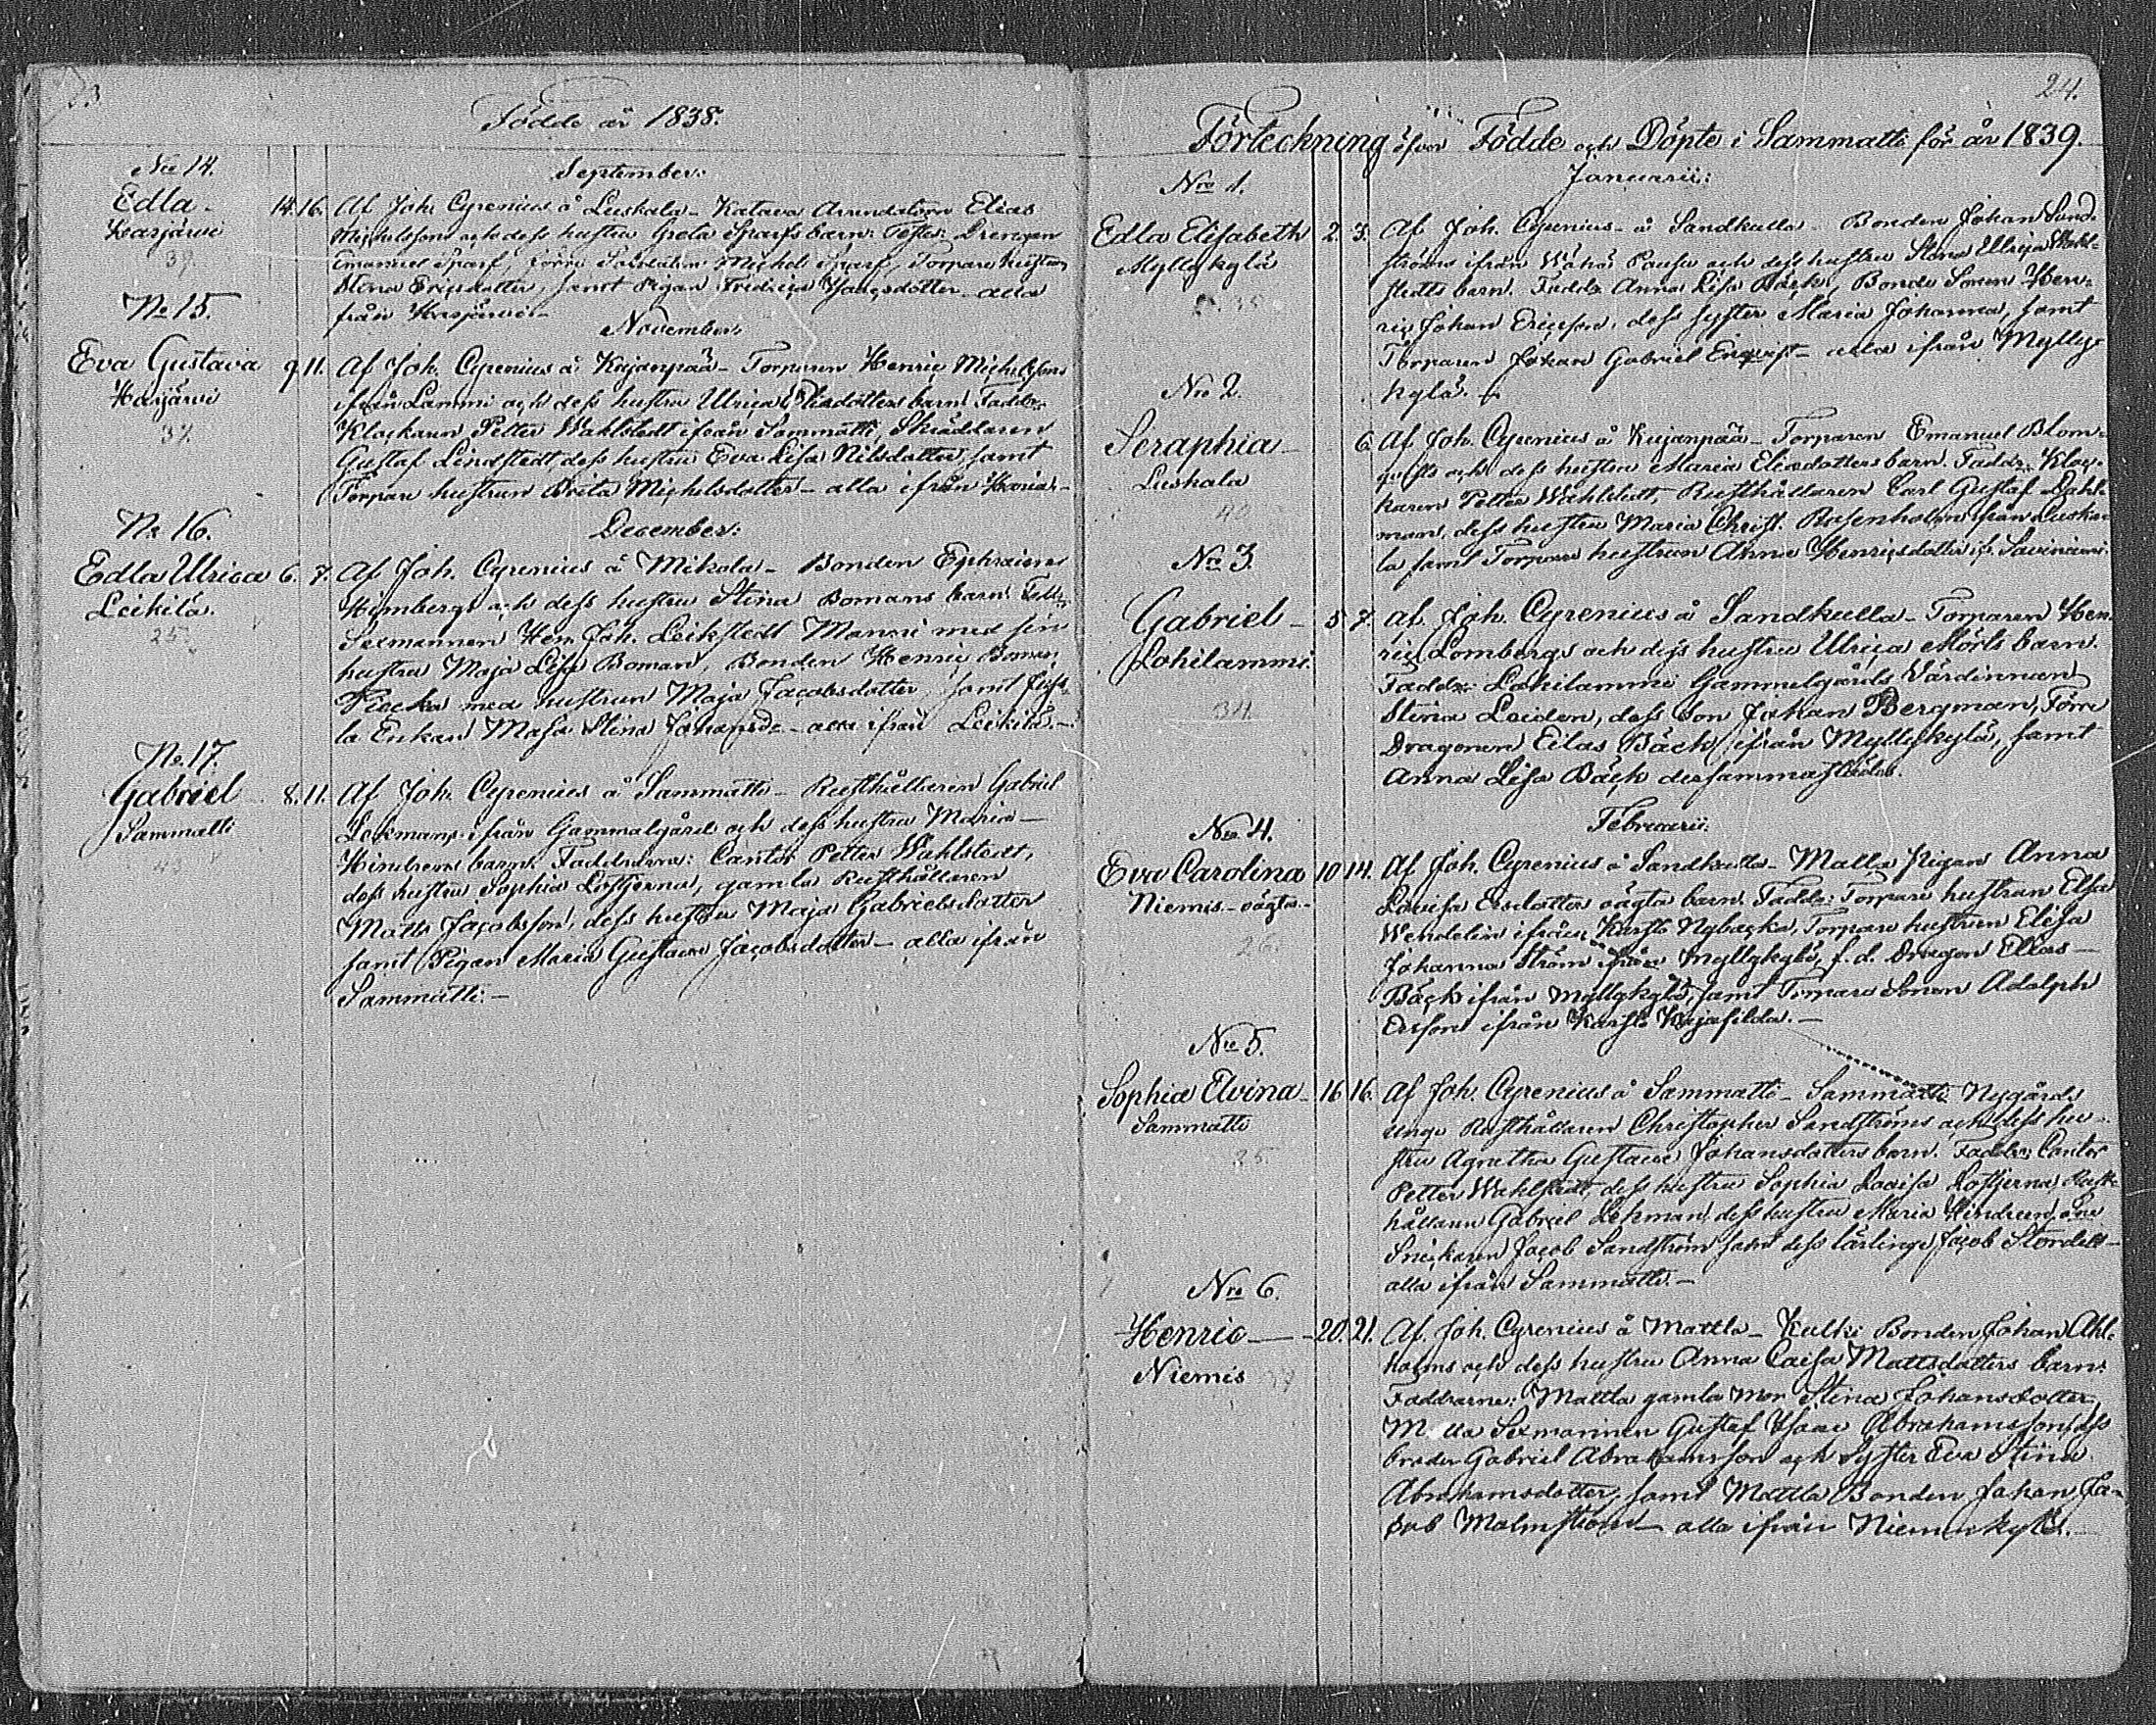 23
Födde år 1838.
No 14.
September.
Edla - 14. 16. Af Joh. Cyrenius å Luskala - Katava Arrendatorn Elias
Karjärvi Michelssons och dess hustru Greta Sparfs barn. Testes: Drengen
39. Emanuel Sparf, förre Soldaten Michel Sparf, Torpare hustrun
Stina Ericsdotter, samt Pigan Fredrica - alla
från Karjärvi -
No 15.
November.
Eva Gustava 9. 11. Af Joh. Cyrenius å Kajanpää - Torparen Henric Michelssons
Harjärvi ifrån Lammi och dess hustru Ulrica Eliædotters barn. Faddr:
37. Klockaren Petter Wahlstedt ifrån Sammatti, Skräddaren
Gustaf Lindstedt, dess hustru Eva Lisa Nilsdotter, samt
Torpare hustrun Brita Michelsdotter - alla ifrån
No 16.
December:
Edla Ulrica 6. 7. Af Joh. Cyrenius å Mikola - Bonden Ephraim
Leikilä. Himbergs och dess hustru Stina Bomans barn.
25. Sexmannen Hen. Joh. Leikstedt Manni med sin
hustru Maja Lisa Boman, Bonden Henric Boman
med hustrun Maja Jacobsdotter, samt
la Enkan Maja Stina - alla ifrån Leikilä. -
No 17.
Gabriel 8. 11. Af Joh. Cyrenius å Sammatti - Rusthållaren Gabriel
Sammatti Lekmans ifrån Gammalgård och dess hustru Maria -
43 Hindreens barn. Faddrarne: Cantor Petter Wahlstedt,
dess hustru Sophia Lostjerna, gamla Rusthållaren
Matts Jacobsson, dess hustru Maja Gabrielsdotter
samt Pigan Maria Gustava Jacobsdotter - alla ifrån
Sammatti. -
24.
Förteckning öfver Födde och Döpte i Sammatti för år 1839.
Januarii:
Nro 1.
Edla Elisabeth 2. 3. Af Joh. Cyrenius - å Sandkulla - Bonden Johan Sand-
Myllykylä ströms ifrån Wähä Pausu och dess hustru Stina Ulrica Wahl-
35. stedts barn. Faddr. Anna Lisa Bäck, Bonde Sonen Hen-
ric Johan Ericsson, dess syster Maria Johanna, samt
Torparen Johan Gabriel Enqvist - alla ifrån Mylly-
kylä. -
Nro 2.
Seraphia - 6. Af Joh. Cyrenius å Kajanpää - Torparen Emanuel Blom-
Luskala qvists och dess hustru Maria Eliædotters barn. Faddr: Kloc-
40 karen Petter Wahlstedt, Rusthållaren Carl Gustaf Dahl-
man, dess hustru Maria Christ. Rosenholm från Luska-
la samt Torpare hustrun Anna Henricsdotter ifr. Saviniemi.
Nro 3.
Gabriel - 5. 7. Af. Joh. Cyrenius å Sandkulla - Torparen Hen-
Lohilammi. ric Lombergs och dess hustru Ulrica Mörts barn.
34. Faddr: Lohilammi Gammelgårds Värdinnan
Stina Leiden, dess Son Johan Bergman, Förre
Dragonen Eilas Bäck ifrån Myllykylä, samt
Anna Lisa Bäck dersammastädes.
Februarii:
Nro 4.
Eva Carolina 10. 14. Af Joh. Cyrenius å Sandkulla - Malla Pigan Anna
Niemis - oägta. - Lovisa Ersdotters oägta barn. Faddr: Torpare hustrun Elsa
26. Wendelin ifrån Karslo Nybacka, Torpare hustrun Elisa
Johanna Ström ifrån Myllykylä, f. d. Dragon Elias -
Bäck ifrån Myllykylä, samt Torpare Sonen Adolph
Ersson ifrån Karslo
Nro 5.
Sophia Elvina - 16. 16. Af Joh. Cyrenius å Sammatti - Sammatti Nygårds
Sammatti unge Rusthållaren Christopher Sandströms och dess hu-
25. stru Agnetha Gustava Johansdotters barn. Faddr: Cantor
Petter Wahlstedt, dess hustru Sophia Lovisa Lostjerna, Rust-
hållaren Gabriel Lekman, dess hustru Maria Hindreen,
Snickaren Jacob Sandström samt dess lärlinge Jacob Stordell -
alla ifrån Sammatti. -
Nro 6.
Henric - 20. 21. Af. Joh. Cyrenius å Mattla - Kulki Bonden Johan Ahl-
Niemis holms och dess hustru Anna Caisa Mattsdotters barn.
Faddrarne: Mattla gamla Mor Stina Johansdotter,
Malla Sexmannen Gustaf Isaac Abrahamsson, dess
broder Gabriel Abrahamsson och Syster Eva Stina
Abrahamsdotter, samt Mattla Bonden Johan Ja-
cob Malmström - alla ifrån Niemenkylä. -